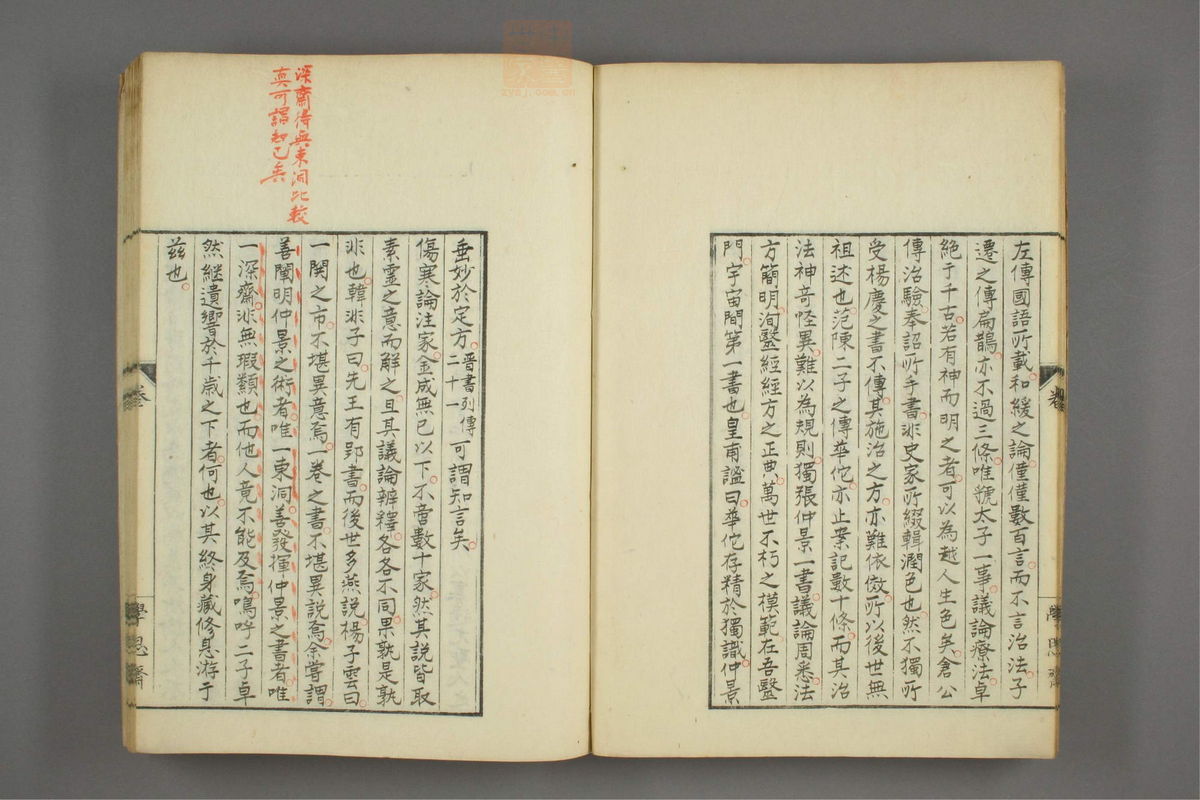 左傳國語所載和緩之論僅僅數百言而不言治法子
遷之傳扁鵲亦不過三條唯虢太子一事議論療法卓
絶于千古若有神而明之者可以為越人生色矣倉公
傳治驗奉詔所手書非史家所綴輯潤色也然不獨所
受楊慶之書不傳其施治之方亦難依倣所以後世無
祖述也范陳二子之傳華佗亦止案記數十條而其治
法神竒怪異難以為規則獨張仲景一書議論周悉法
方簡明洵醫經經方之正典萬世不朽之模範在吾醫
門宇宙間第一書也皇甫謐曰華佗存精於獨識仲景
學思齋
深齋得與東洞比較
真可謂知己矣
垂妙於定方晋書列傳二十一可謂知言矣
傷寒論注家金成無已以下不啻數十家然其說皆取
素靈之意而解之且其議論辨釋各各不同果孰是孰
非也韓非子曰先王有郢書而後世多燕說楊子雲曰
一閧之市不堪異意焉一卷之書不堪異說焉余嘗謂
善闡明仲景之術者唯一東洞善發揮仲景之書者唯
一深齋非無瑕纇也而他人竟不能及焉嗚呼二子卓
然継遺響於千歲之下者何也以其終身藏修息游于
茲也
學思齋
zysj.com.cn